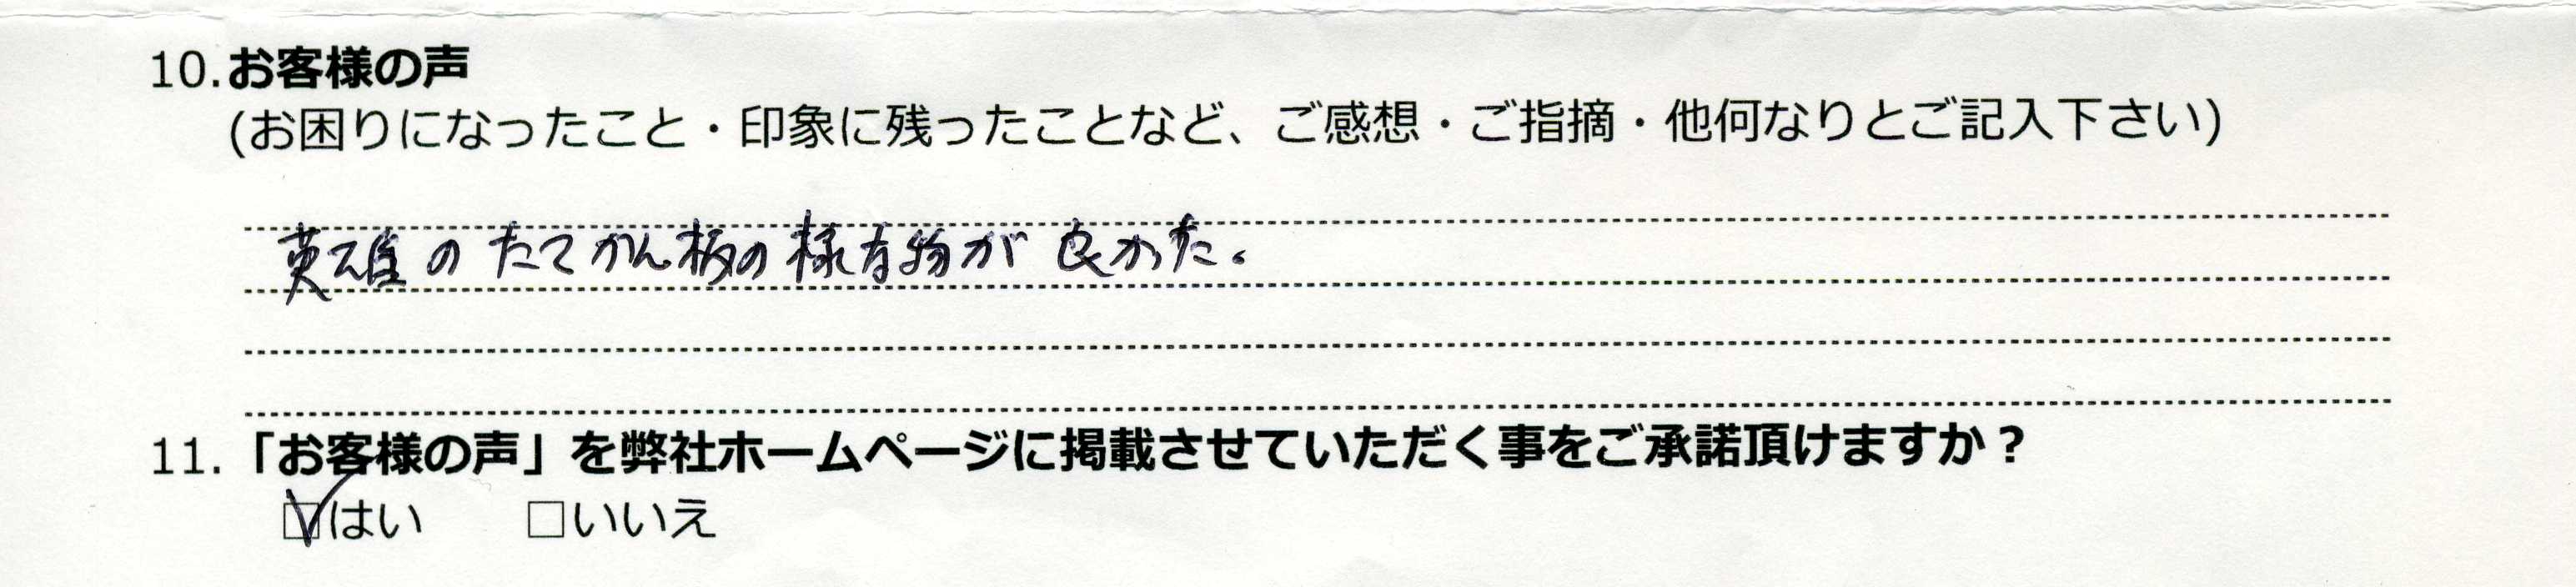 10.お客様の声
(お困りになったこと・印象に残ったことなど、ご感想・ご指摘・他何なりとご記入下さい)
英雄のたてかん板の様な物が良かった。
11.「お客様の声」を弊社ホームページに掲載させていただく事をご承諾頂けますか？
☑はい　□いいえ